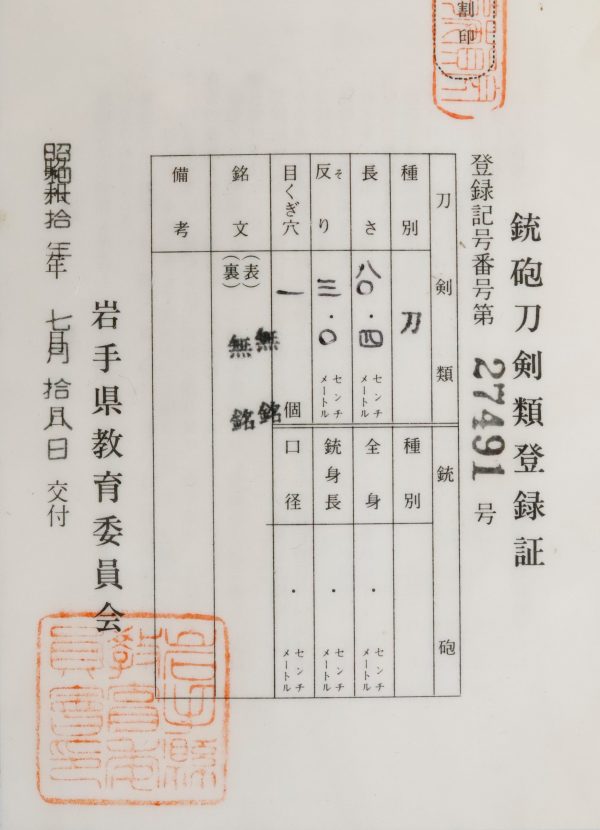 割印
銃砲刀剣類登録証
登録記号番号第 27491 号
刀剣類
種別 刀
長さ 八〇.四 センチメートル
反り そ 三.〇 センチメートル
目くぎ穴 一 個
銘文 (表) 無銘
(裏) 無銘
備考
銃砲
種別
全身 . センチメートル
銃身長 . センチメートル
口径 . センチメートル
岩手県教育委員会
昭和 拾 年 七月 拾 日 交付
岩手縣教育委員會印